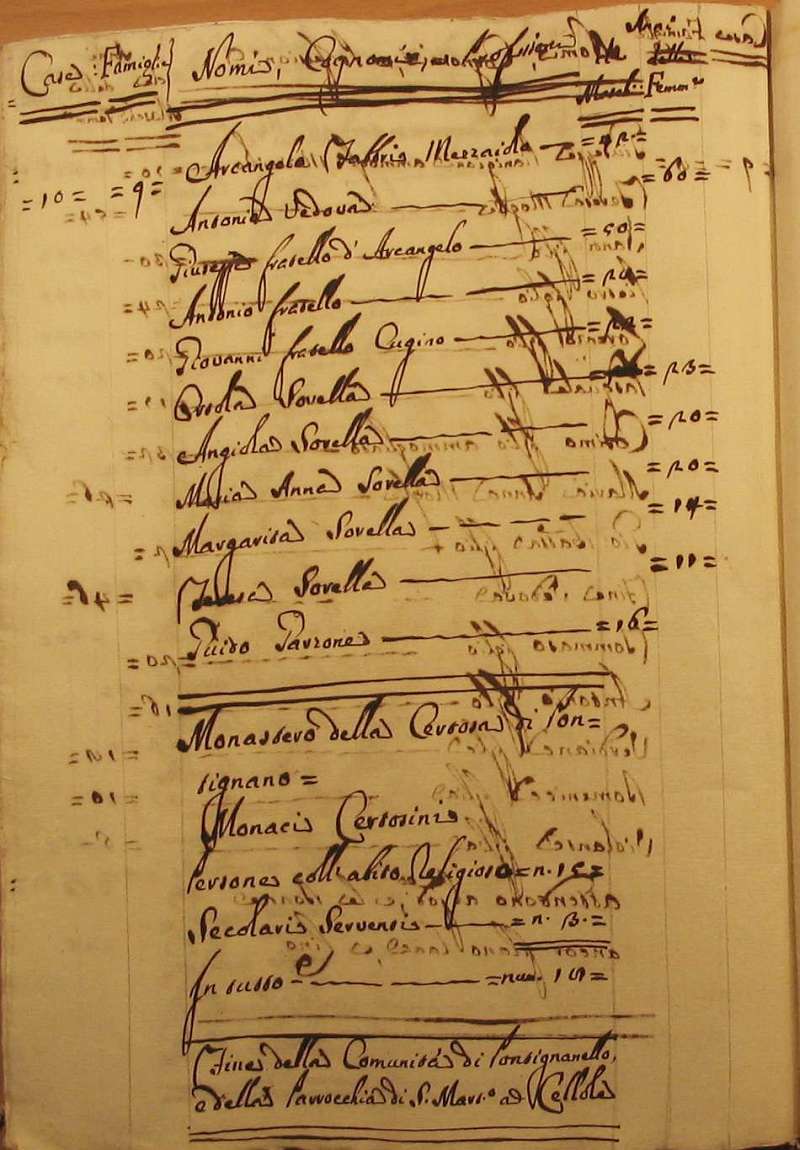 Case : Famiglie Nomi, Cognomi, e Professioni Anni della età
Maschi: Femme
=10= =9= Arcangelo Fabbrio Mezzaiolo =42=
Antonia Vedova =60=
Giuseppe fratello d'Arcangelo =50=
Antonio fratello =24=
Giovanni fratello Cugino
Orsola Sorella =23=
Angiola Sorella =20=
Maria Anna Sorella =20=
Margarita Sorella =14=
Teresa Sorella =11=
Guido Garzone =16=
Monastero della Certosa di Pon=
tignano=
Monaci Certosini
Persone coll'abito Religioso = n. 15=
Secolari Serventi = n. 3.=
In tutto = num. 18=
Fine della Comunità di Pontignanello,
e della Parrocchia di S. Mart.o a Cellole